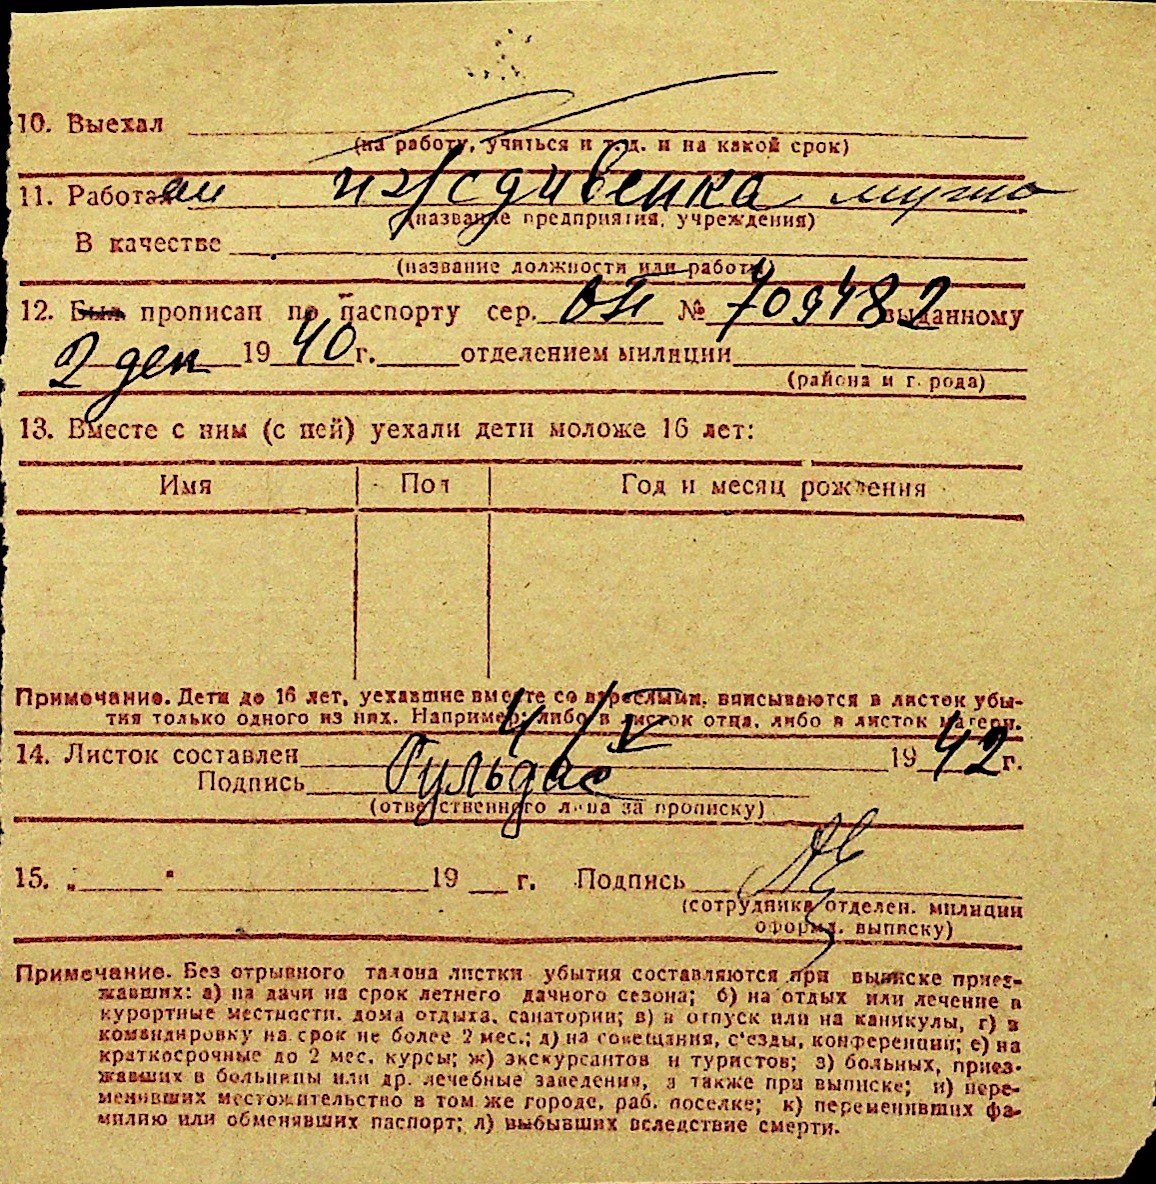 10. Выехал
(на работу, учиться и т.д. и на какой срок)
11. Работал иждивенка мужа
(название предприятия, учреждения)
В качестве
(название должности или работы)
12. Был прописан по паспорту сер. № 709482 выданному
2 дек 1940 г. отделением милиции
(района и города)
13. Вместе с ним (с ней) уехали дети моложе 16 лет:
Имя Пол Год и месяц рождения
Примечание. Дети до 16 лет, уехавшие вместе со взрослыми, вписываются в листок убы-
тия только одного из них. Например: либо в листок отца, либо в листок матери.
14. Листок составлен 4/V 1942 г.
Подпись
(ответственного лица за прописку)
15. „ " 19 г. Подпись
(сотрудника отделен. милиции
оформ. выписку)
Примечание. Без отрывного талона листки убытия составляются при выписке приез-
жавших: а) на дачи на срок летнего дачного сезона; б) на отдых или лечение в
курортные местности, дома отдыха, санатории; в) в отпуск или на каникулы, г) в
командировку на срок не более 2 мес.; д) на совещания, с'езды, конференции; е) на
краткосрочные до 2 мес. курсы; ж) экскурсантов и туристов; з) больных, приез-
жавших в больницы или др. лечебные заведения, а также при выписке; и) пере-
менивших местожительство в том же городе, раб. поселке; к) переменивших фа-
милию или обменявших паспорт; л) выбывших вследствие смерти.